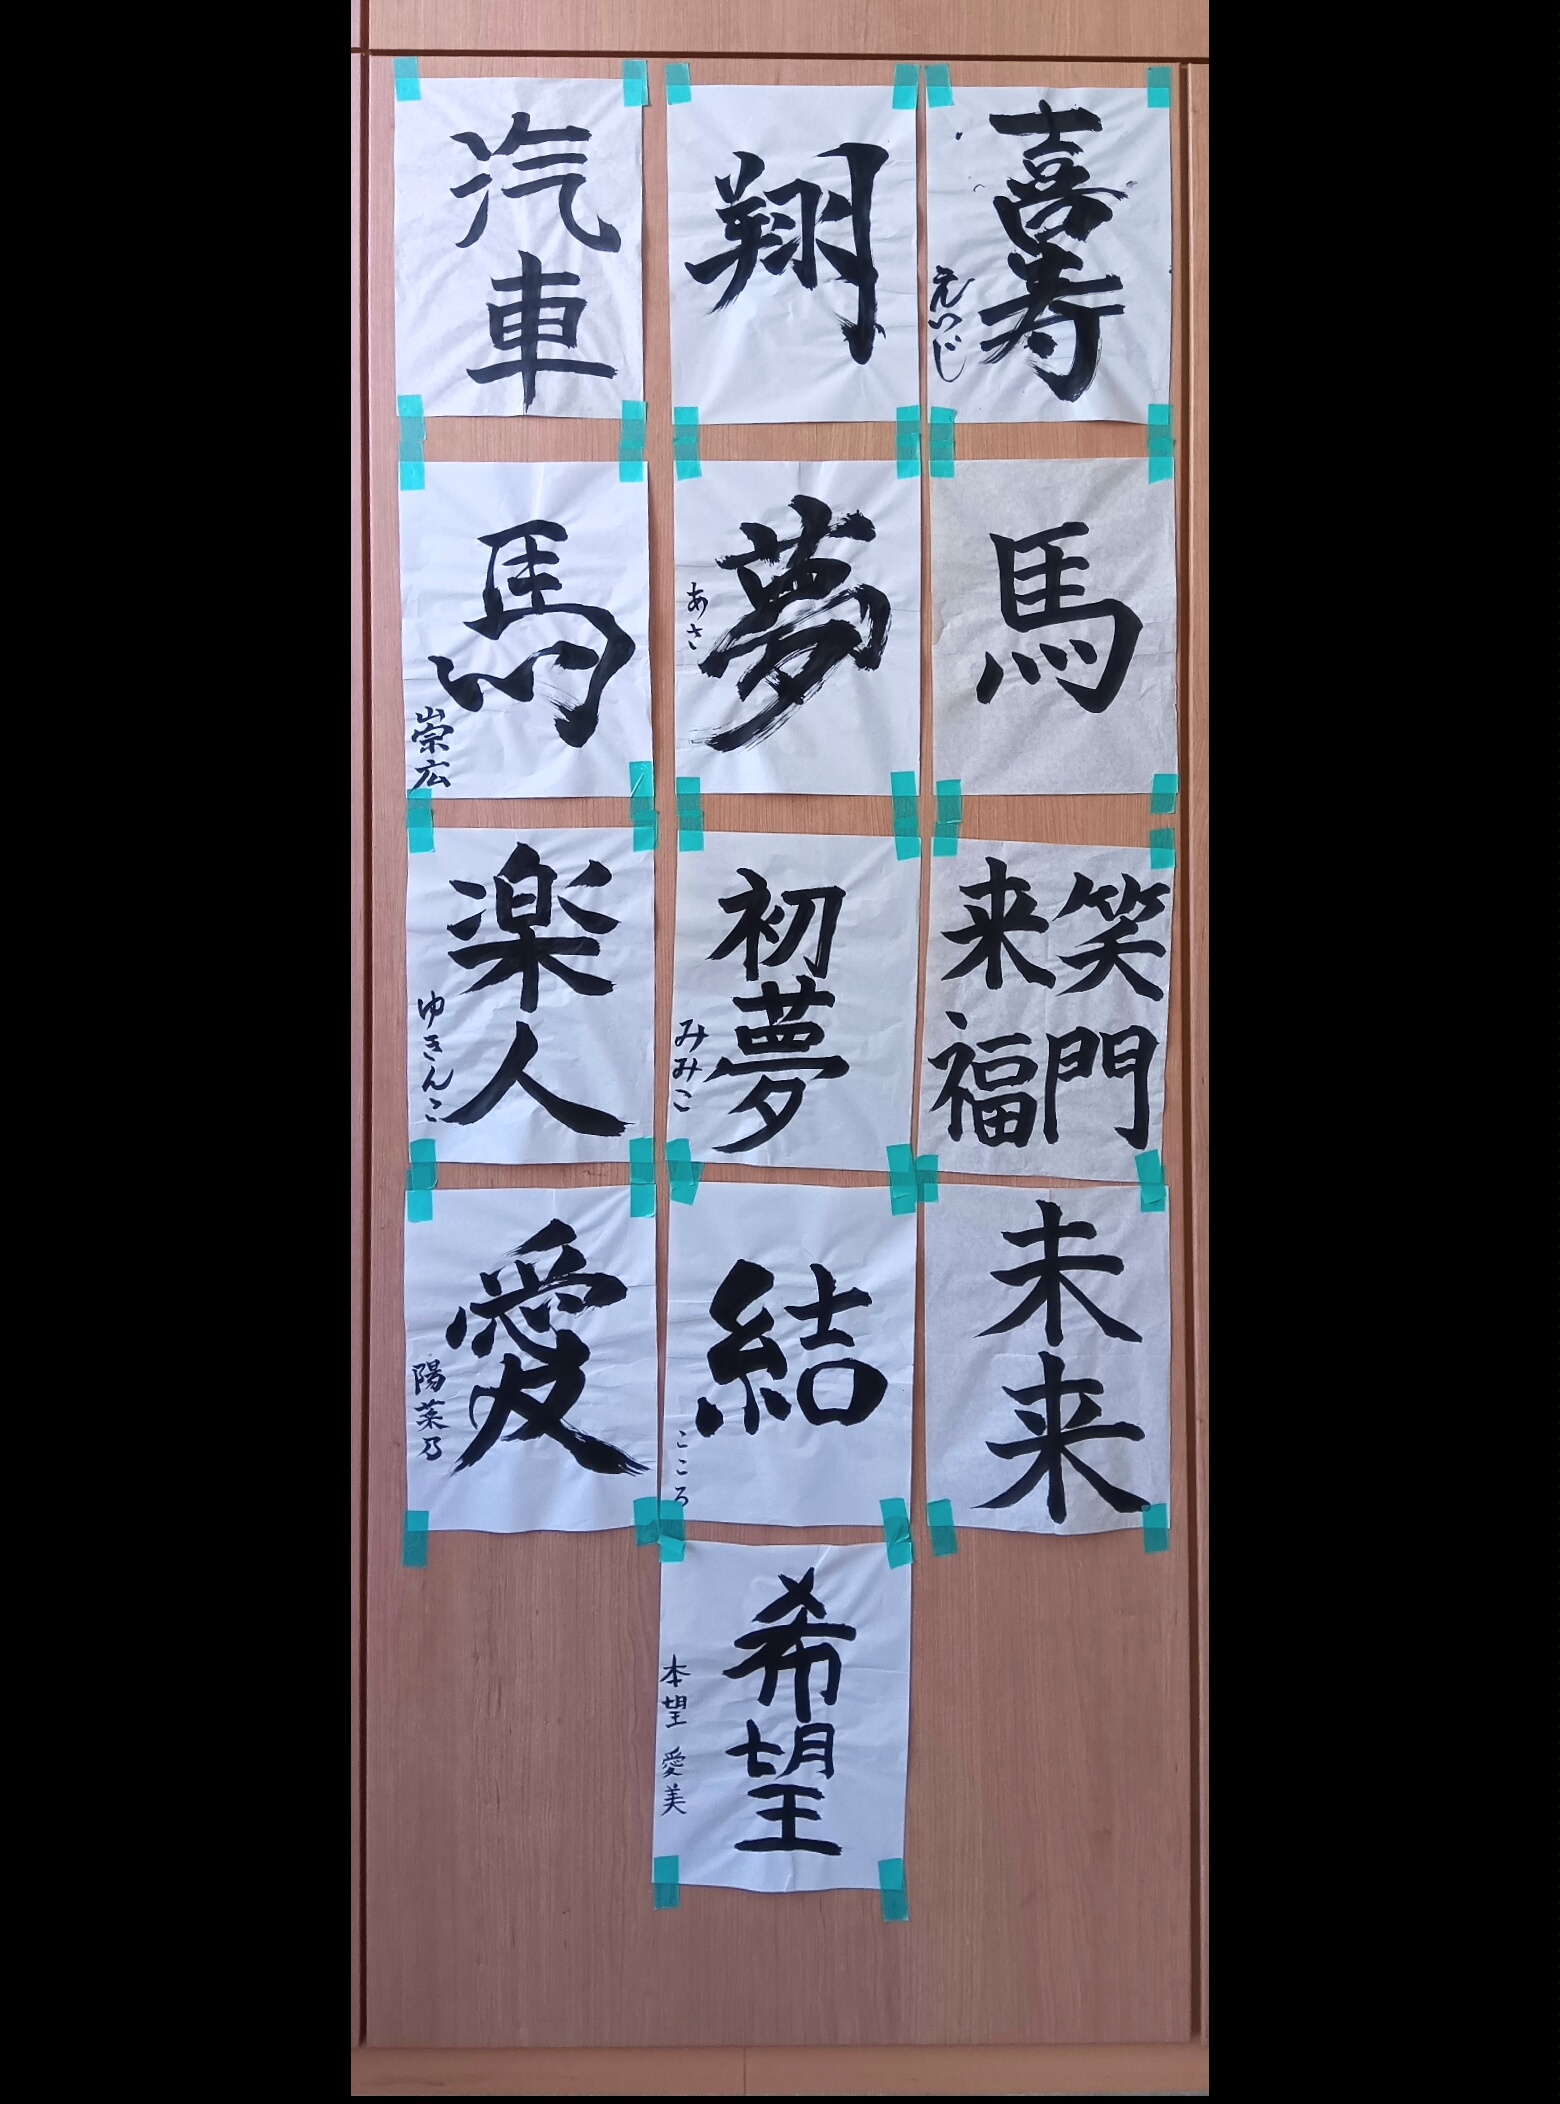 喜寿
えいじ
翔
汽車
馬
夢
あさ
馬
崇広
笑門
来福
初夢
みみこ
楽人
ゆきんこ
未来
結
こころ
愛
陽菜乃
希望
本望 愛美